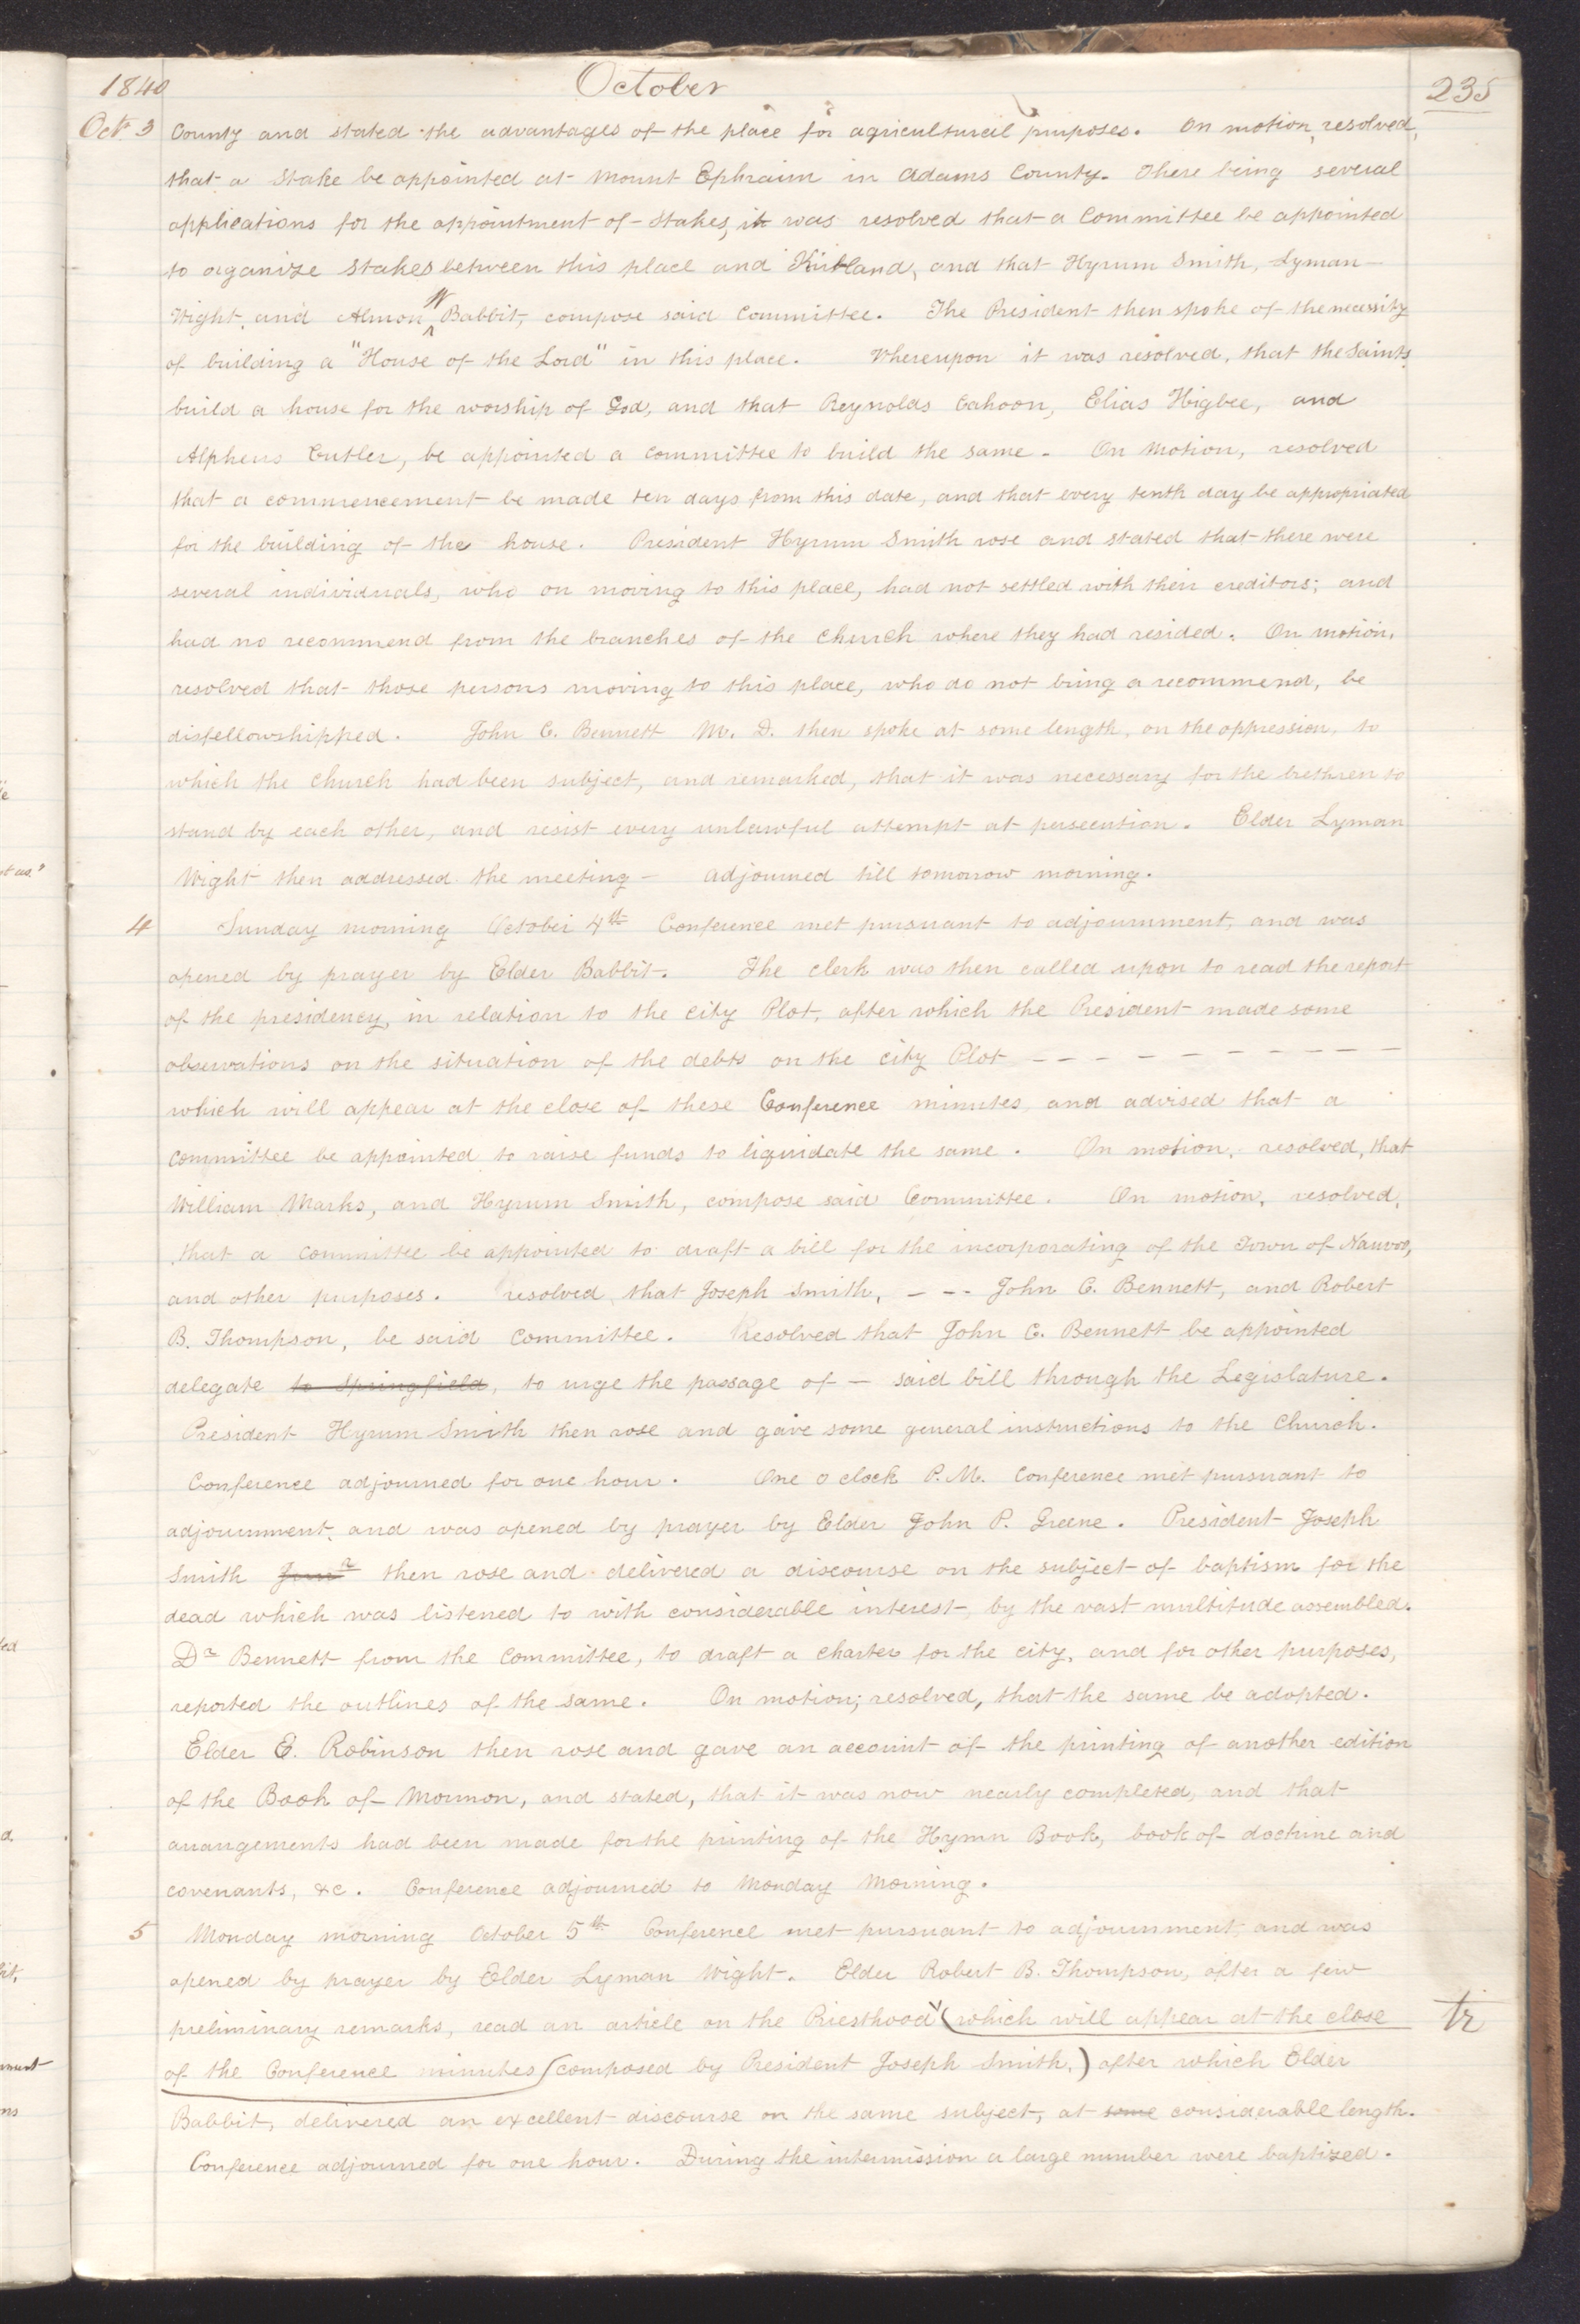 1840 October 235
Oct. 3 County and stated the advantages of the place for agricultural purposes. On motion, resolved,
that a Stake be appointed at Mount Ephraim in Adams County. There being several
applications for the appointment of Stakes, it was resolved that a Committee be appointed
to organize Stakes between this place and Kirtland, and that Hyrum Smith, Lyman
Wight, and Almon W Babbit, compose said Committee. The President then spoke of the necessity
of building a "House of the Lord" in this place. Whereupon it was resolved, that the Saints,
build a house for the worship of God, and that Reynolds Cahoon, Elias Higbee, and
Alpheus Cutler, be appointed a committee to build the same - On Motion, resolved
that a commencement be made ten days from this date, and that every tenth day be appropriated
for the building of the house. President Hyrum Smith rose and stated that there were
several individuals, who on moving to this place, had not settled with their creditors; and
had no recommend from the branches of the church where they had resided. On motion,
resolved that those persons moving to this place, who do not bring a recommend, be
disfellowshipped. John C. Bennett M. D. then spoke at some length, on the oppression, to
which the church had been subject, and remarked, that it was necessary for the brethren to
stand by each other, and resist every unlawful attempt at persecution. Elder Lyman
Wight then addressed the meeting - adjourned till tomorrow morning.
4 Sunday morning October 4th Conference met pursuant to adjournment, and was
opened by prayer by Elder Babbit. The clerk was then called upon to read the report
of the presidency, in relation to the city Plot, after which the President made some
observations on the situation of the debts on the city Plot - - - - - - - - - -
which will appear at the close of these Conference minutes, and advised that a
committee be appointed to raise funds to liquidate the same. On motion, resolved, that
William Marks, and Hyrum Smith, compose said Committee. On motion, resolved,
that a committee be appointed to draft a bill for the incorporating of the Town of Nauvoo,
and other purposes. resolved, that Joseph Smith, - - - John C. Bennett, and Robert
B. Thompson, be said Committee. Resolved that John C. Bennett be appointed
delegate to Springfield, to urge the passage of - said bill through the Legislature.
President Hyrum Smith then rose and gave some general instructions to the Church.
Conference adjourned for one hour. One o clock P.M. Conference met pursuant to
adjournment, and was opened by prayer by Elder John P. Greene. President Joseph
Smith Junr then rose and delivered a discourse on the subject of baptism for the
dead which was listened to with considerable interest, by the vast multitude assembled.
Dr Bennett from the Committee, to draft a charter for the city, and for other purposes,
reported the outlines of the same. On motion; resolved, that the same be adopted.
Elder E. Robinson then rose and gave an account of the printing of another edition
of the Book of Mormon, and stated, that it was now nearly completed, and that
arrangements had been made for the printing of the Hymn Book, book of doctrine and
covenants, &c. Conference adjourned to Monday Morning.
5 Monday morning October 5th Conference met pursuant to adjournment, and was
opened by prayer by Elder Lyman Wight. Elder Robert B. Thompson, after a few
preliminary remarks, read an article on the Priesthood (which will appear at the close tr
of the Conference minutes (composed by President Joseph Smith,) after which Elder
Babbit, delivered an excellent discourse on the same subject, at some considerable length.
Conference adjourned for one hour. During the intermission a large number were baptized.